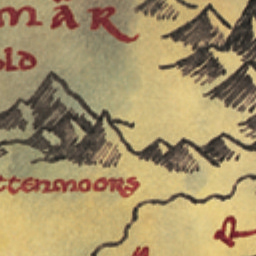 mâr
old
ttenmoors